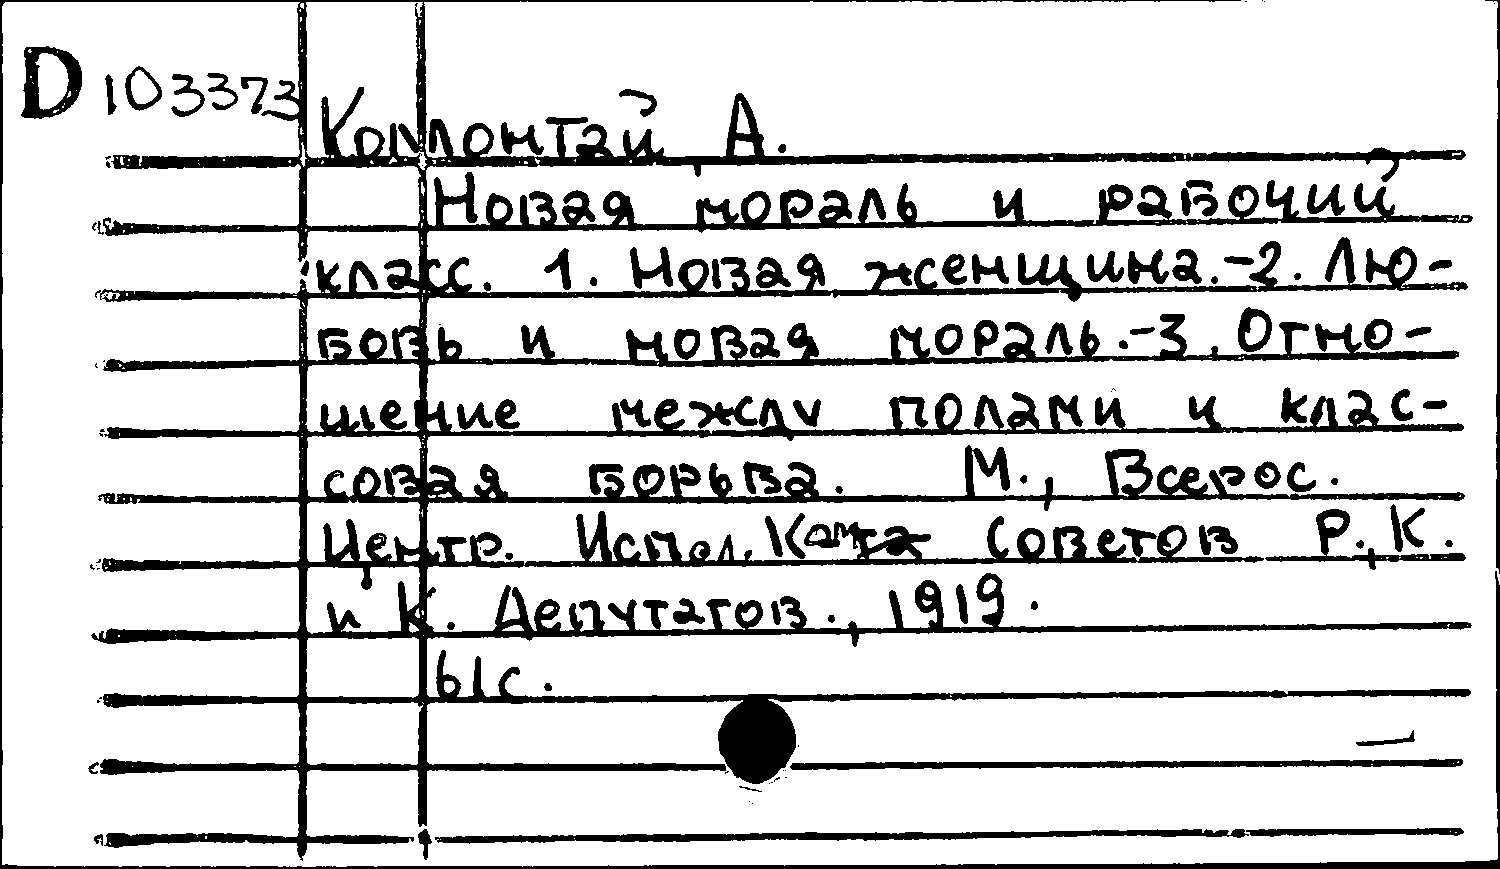 D 103373
Коллонтай, А.
Новая мораль и рабочий
класс. 1. Новая женщина.-2. Лю-
бовь и новая мораль.-3. Отно-
шение между полами и клас-
совая борьба. М., Всерос.
Центр. Испол. Ком-та Советов Р., К.
и К. Депутатов., 1919.
61с.